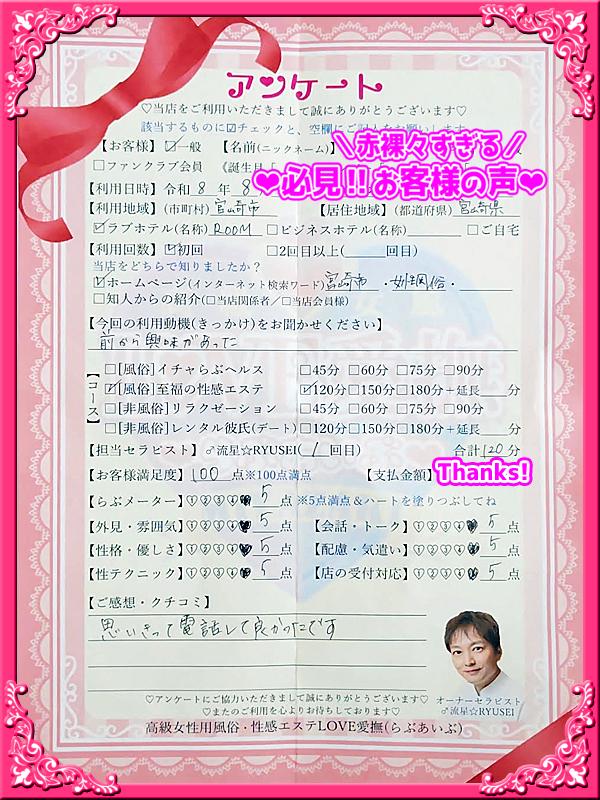 アンケート
♡当店をご利用いただきまして誠にありがとうございます♡
該当するものに☑チェックと、空欄にご記入をお願いします
【お客様】☑一般 【名前(ニックネーム)】
□ファンクラブ会員 《誕生日「
\赤裸々すぎる/
❤必見!!お客様の声❤
【利用日時】令和 8 年 8
【利用地域】(市町村)宮崎市 【居住地域】(都道府県)宮崎県
☑ラブホテル(名称)ROOM □ビジネスホテル(名称) □ご自宅
【利用回数】☑初回 □2回目以上( 回目)
当店をどちらで知りましたか?
☑ホームページ(インターネット検索ワード)宮崎市 ・女性風俗・
□知人からの紹介(□当店関係者/□当店会員様)
【今回の利用動機(きっかけ)をお聞かせください】
前から興味があった
【コース】
□[風俗]イチャらぶヘルス □45分 □60分 □75分 □90分
☑[風俗]至福の性感エステ ☑120分□150分□180分+延長 分
□[非風俗]リラクゼーション □45分 □60分 □75分 □90分
□[非風俗]レンタル彼氏(デート) □120分□150分□180分+延長 分
【担当セラピスト】♂流星☆RYUSEI( 1 回目) 合計120分
【お客様満足度】100 点※100点満点 【支払金額】Thanks!
【らぶメーター】①②③④♥ 5 点 ※5点満点&ハートを塗りつぶしてね
【外見・雰囲気】①②③④♥ 5 点 【会話・トーク】①②③④♥ 5 点
【性格・優しさ】①②③④♥ 5 点 【配慮・気遣い】①②③④♥ 5 点
【性テクニック】①②③④♥ 5 点 【店の受付対応】①②③④♥ 5 点
【ご感想・クチコミ】
思いきって電話して良かったです
♡アンケートにご協力いただきまして誠にありがとうございます♡
♡またのご利用を心よりお待ちしております♡
オーナーセラピスト
♂流星☆RYUSEI
高級女性用風俗・性感エステLOVE愛撫(らぶあいぶ)